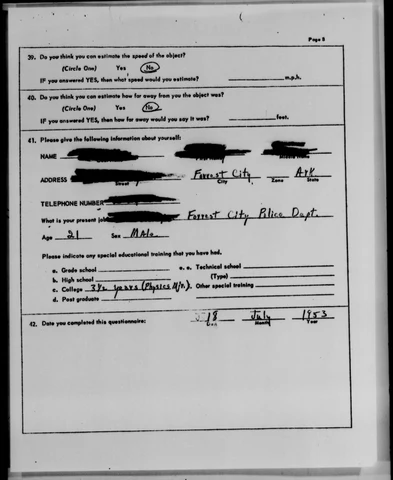 Page 8
39. Do you think you can estimate the speed of the object?
(Circle One) Yes No
IF you answered YES, then what speed would you estimate? m.p.h.
40. Do you think you can estimate how far away from you the object was?
(Circle One) Yes No
IF you answered YES, then how far away would you say it was? feet.
41. Please give the following information about yourself:
NAME
ADDRESS Forrest City Ark
Street City Zone State
TELEPHONE NUMBER
What is your present job Forrest City Police Dept.
Age 21 Sex Male
Please indicate any special educational training that you have had.
a. Grade school e. Technical school
b. High school (Type)
c. College 3½ years (Physics Mjr). Other special training
d. Post graduate
42. Date you completed this questionnaire: 18 July 1953
Day Month Year